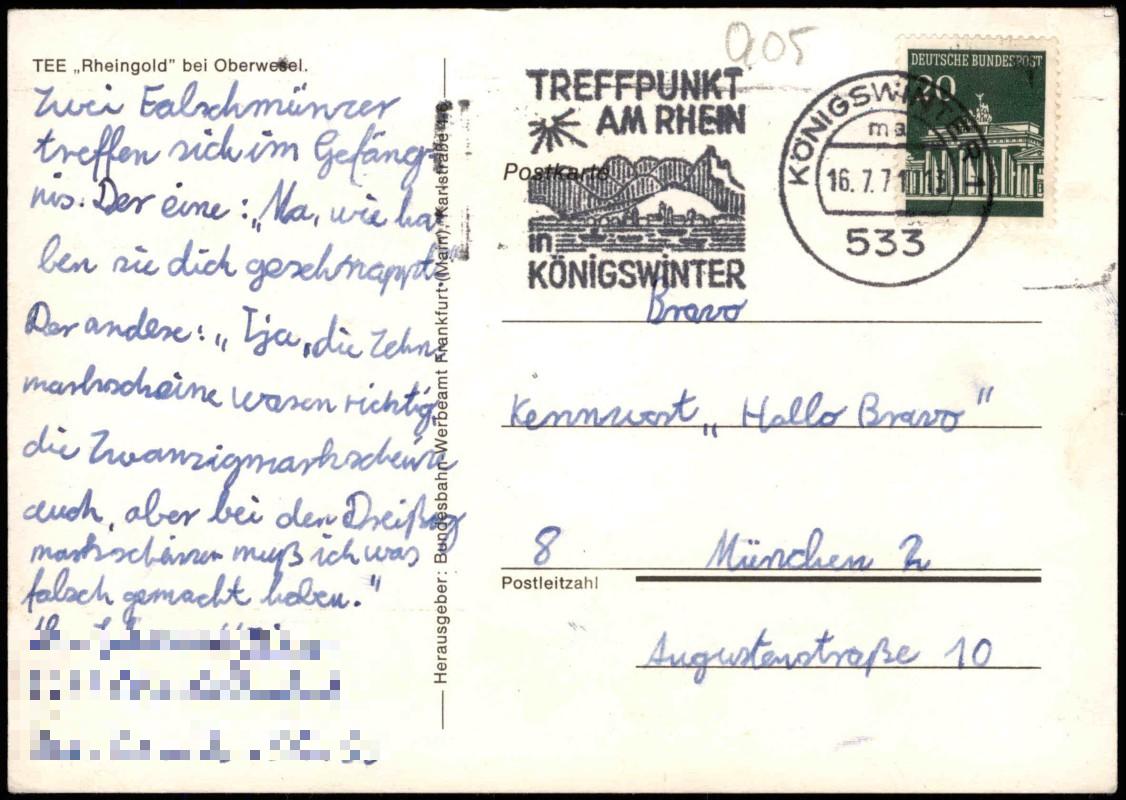 TEE „Rheingold” bei Oberwesel.
Zwei Falschmünzer
treffen sich im Gefäng-
nis. Der eine: „Na, wie ha-
ben sie dich geschnappt."
Der andere: „Tja, die Zehn-
markscheine waren richtig,
die Zwanzigmarkscheine
auch, aber bei den Dreißig
markscheinen muß ich was
falsch gemacht haben."
Herausgeber: Bundesbahn-Werbeamt Frankfurt (Main), Karlstraße 4-6
0.05
TREFFPUNKT
AM RHEIN
in
KÖNIGSWINTER
Postkarte
KÖNIGSWINTER 1
ma
16.7.71-13
533
DEUTSCHE BUNDESPOST
20
Bravo
Kennwort „Hallo Bravo"
8 München 2
Postleitzahl
Augustenstraße 10